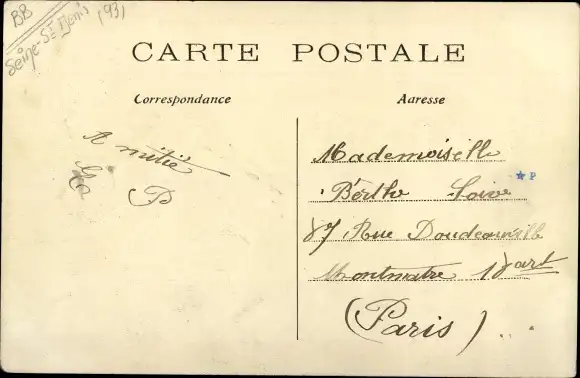 BB
Seine-St Denis (93)
CARTE POSTALE
Correspondance
Adresse
Amitié
P
Mademoiselle
Berthe
87 Rue Doudeauville
Montmatre
(Paris)
★ P